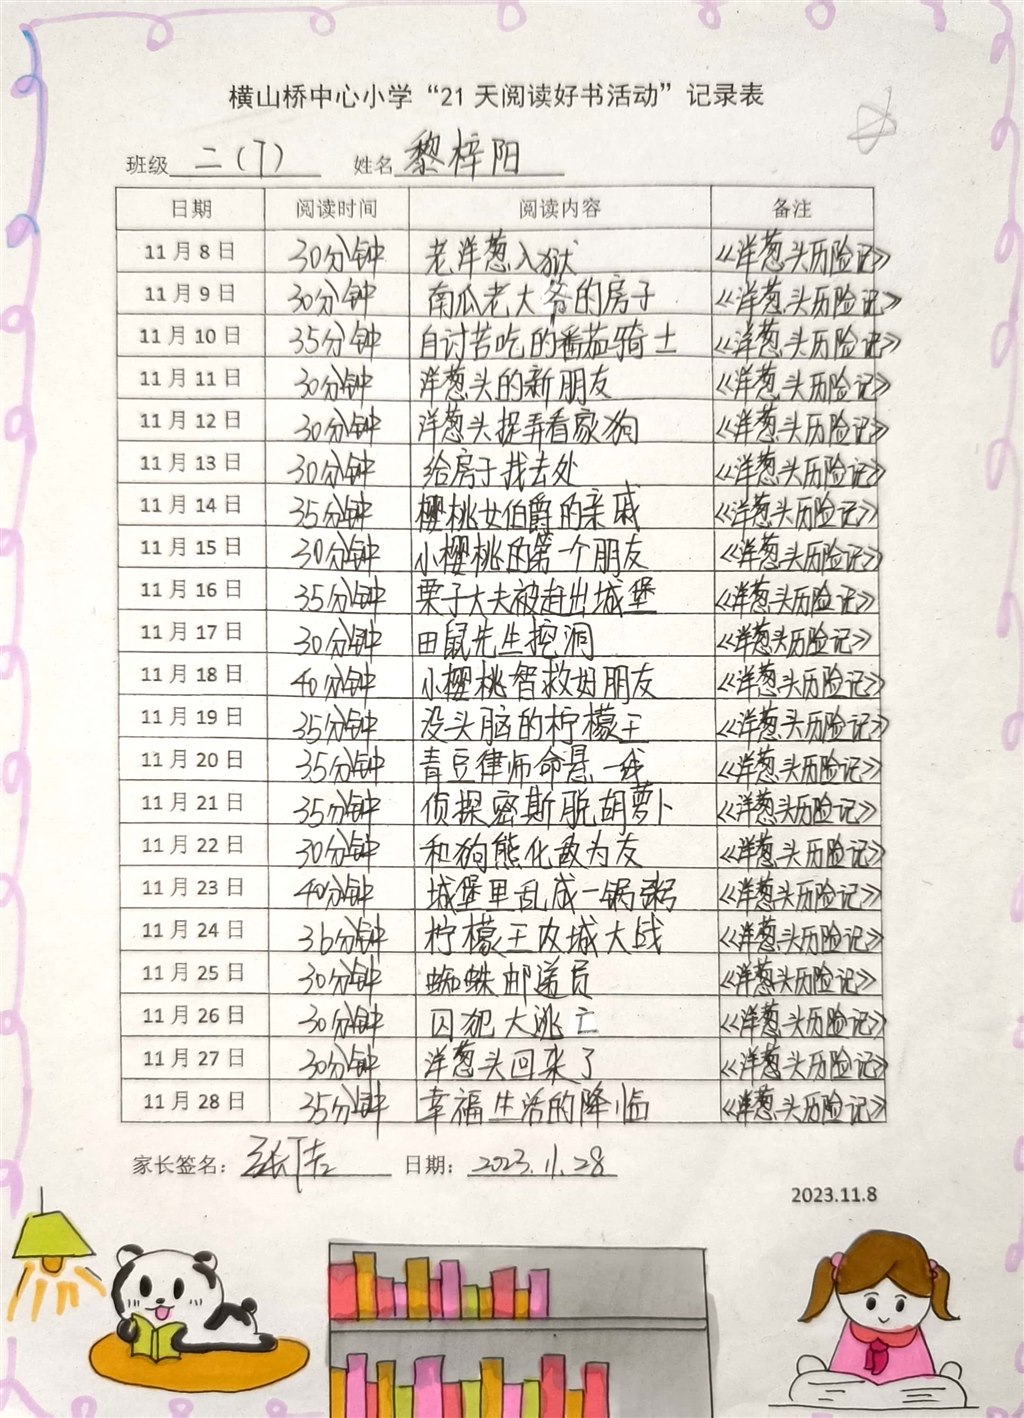 横山桥中心小学“21天阅读好书活动”记录表
班级 二（7） 姓名 黎梓阳
日期 阅读时间 阅读内容 备注
11月8日 30分钟 老洋葱入狱 《洋葱头历险记》
11月9日 30分钟 南瓜老大爷的房子 《洋葱头历险记》
11月10日 35分钟 自讨苦吃的番茄骑士 《洋葱头历险记》
11月11日 30分钟 洋葱头的新朋友 《洋葱头历险记》
11月12日 30分钟 洋葱头捉弄看家狗 《洋葱头历险记》
11月13日 30分钟 给房子找去处 《洋葱头历险记》
11月14日 35分钟 樱桃女伯爵的亲戚 《洋葱头历险记》
11月15日 30分钟 小樱桃的第一个朋友 《洋葱头历险记》
11月16日 35分钟 栗子大夫被赶出城堡 《洋葱头历险记》
11月17日 30分钟 田鼠先生挖洞 《洋葱头历险记》
11月18日 40分钟 小樱桃智救好朋友 《洋葱头历险记》
11月19日 35分钟 没头脑的柠檬王 《洋葱头历险记》
11月20日 35分钟 青豆律师命悬一线 《洋葱头历险记》
11月21日 35分钟 侦探密斯脱胡萝卜 《洋葱头历险记》
11月22日 30分钟 和狗熊化敌为友 《洋葱头历险记》
11月23日 40分钟 城堡里乱成一锅粥 《洋葱头历险记》
11月24日 36分钟 柠檬王攻城大战 《洋葱头历险记》
11月25日 30分钟 蜘蛛邮递员 《洋葱头历险记》
11月26日 30分钟 囚犯大逃亡 《洋葱头历险记》
11月27日 30分钟 洋葱头回来了 《洋葱头历险记》
11月28日 35分钟 幸福生活的降临 《洋葱头历险记》
家长签名： 日期：2023.11.28
2023.11.8